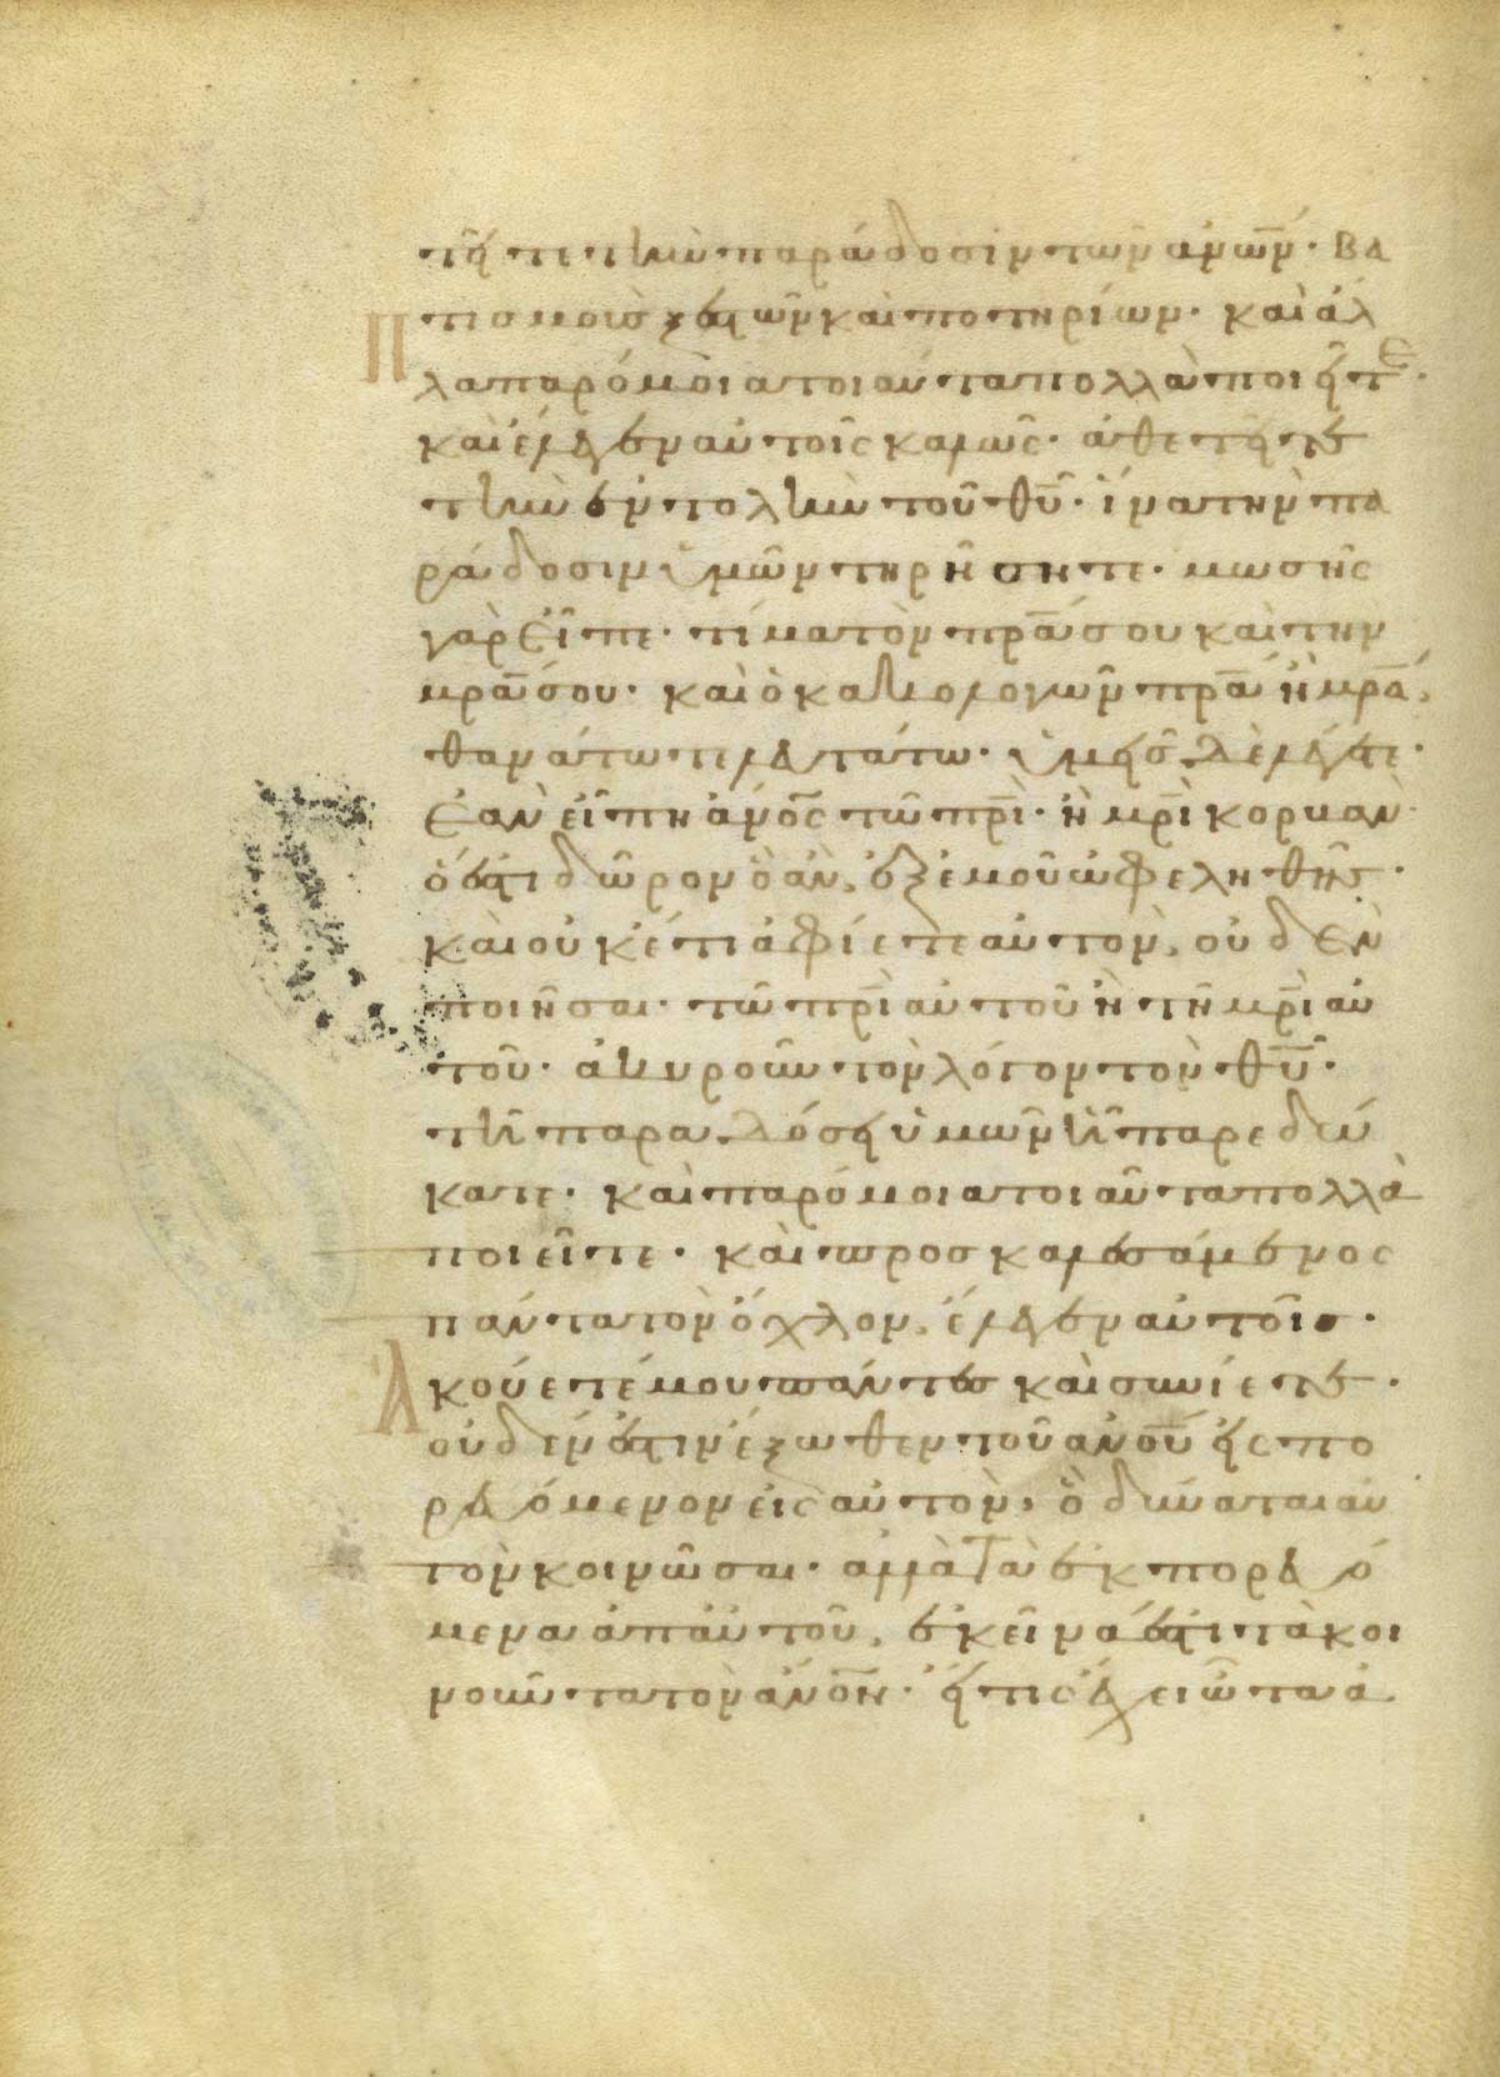 τεῖτε τὴν παράδοσιν τῶν ἀνῶν· βα
πτισμοὺς ξεστῶν καὶ ποτηρίων· καὶ ἀλ
λα παρόμοια τοιαύτα πολλὰ ποιεῖτε·
καὶ ἔλεγεν αὐτοῖς καλῶς· ἀθετεῖτε
τὴν ἐντολὴν τοῦ θῦ· ἵνα τὴν πα
ράδοσιν ὑμῶν τηρήσητε· μωσῆς
γὰρ εἶπε· τίμα τὸν πρᾱ σου καὶ τὴν
μρᾱ σου· καὶ ὁ κακολογῶν πρᾱ ἢ μρᾱ,
θανάτω τελευτάτω· ὑμεῖς δὲ λέγετε·
ἐὰν εἴπη ἀνος τῶ πρι· ἢ μρι κορβαν
ὅ ἐστι δῶρον ὃ ἀν, ἐξ ἐμοῦ ὠφεληθῆς·
καὶ οὐκέτι ἀφίετε αὐτον, οὐδὲν
ποιῆσαι· τῶ πρι αὐτοῦ ἢ τῆ μρι αὐ
τοῦ· ἀκυροῦν τὸν λόγον τοῦ θῦ·
τῆ παραδόσει ὑμῶν ἧ παρεδώ
κατε· καὶ παρόμοια τοιαῦτα πολλὰ
ποιεῖτε· καὶ προσκαλεσάμενος
πάντα τὸν ὄχλον, ἔλεγεν αὐτοῖς·
Ἀκούετέ μου πάντες καὶ συνίετε·
οὐδέν ἐστιν ἔξωθεν τοῦ ἀνου εἰσπο
ρευόμενον εἰς αὐτὸν, ὃ δύναται αὐ
τὸν κοινῶσαι· ἀλλὰ τὰ ἐκπορευό
μενα ἀπ αὐτοῦ, ἐκεῖνά ἐστι τὰ κοι
νοῦντα τὸν ἀνον· εἴ τις ἔχει ὦτα ἀ